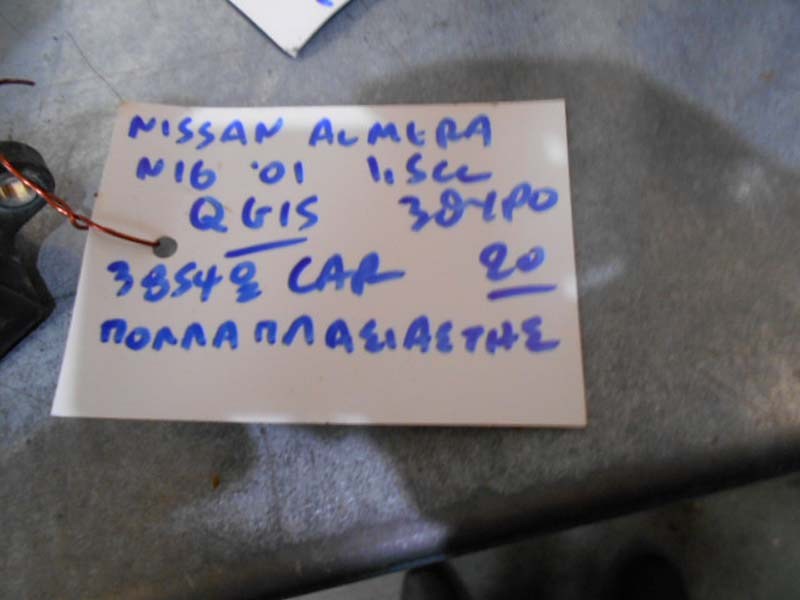 NISSAN ALMERA
N16 '01 1,5cc
QG15 3ΘΥΡΟ
38542 CAR 20
ΠΟΛΛΑΠΛΑΣΙΑΣΤΗΣ